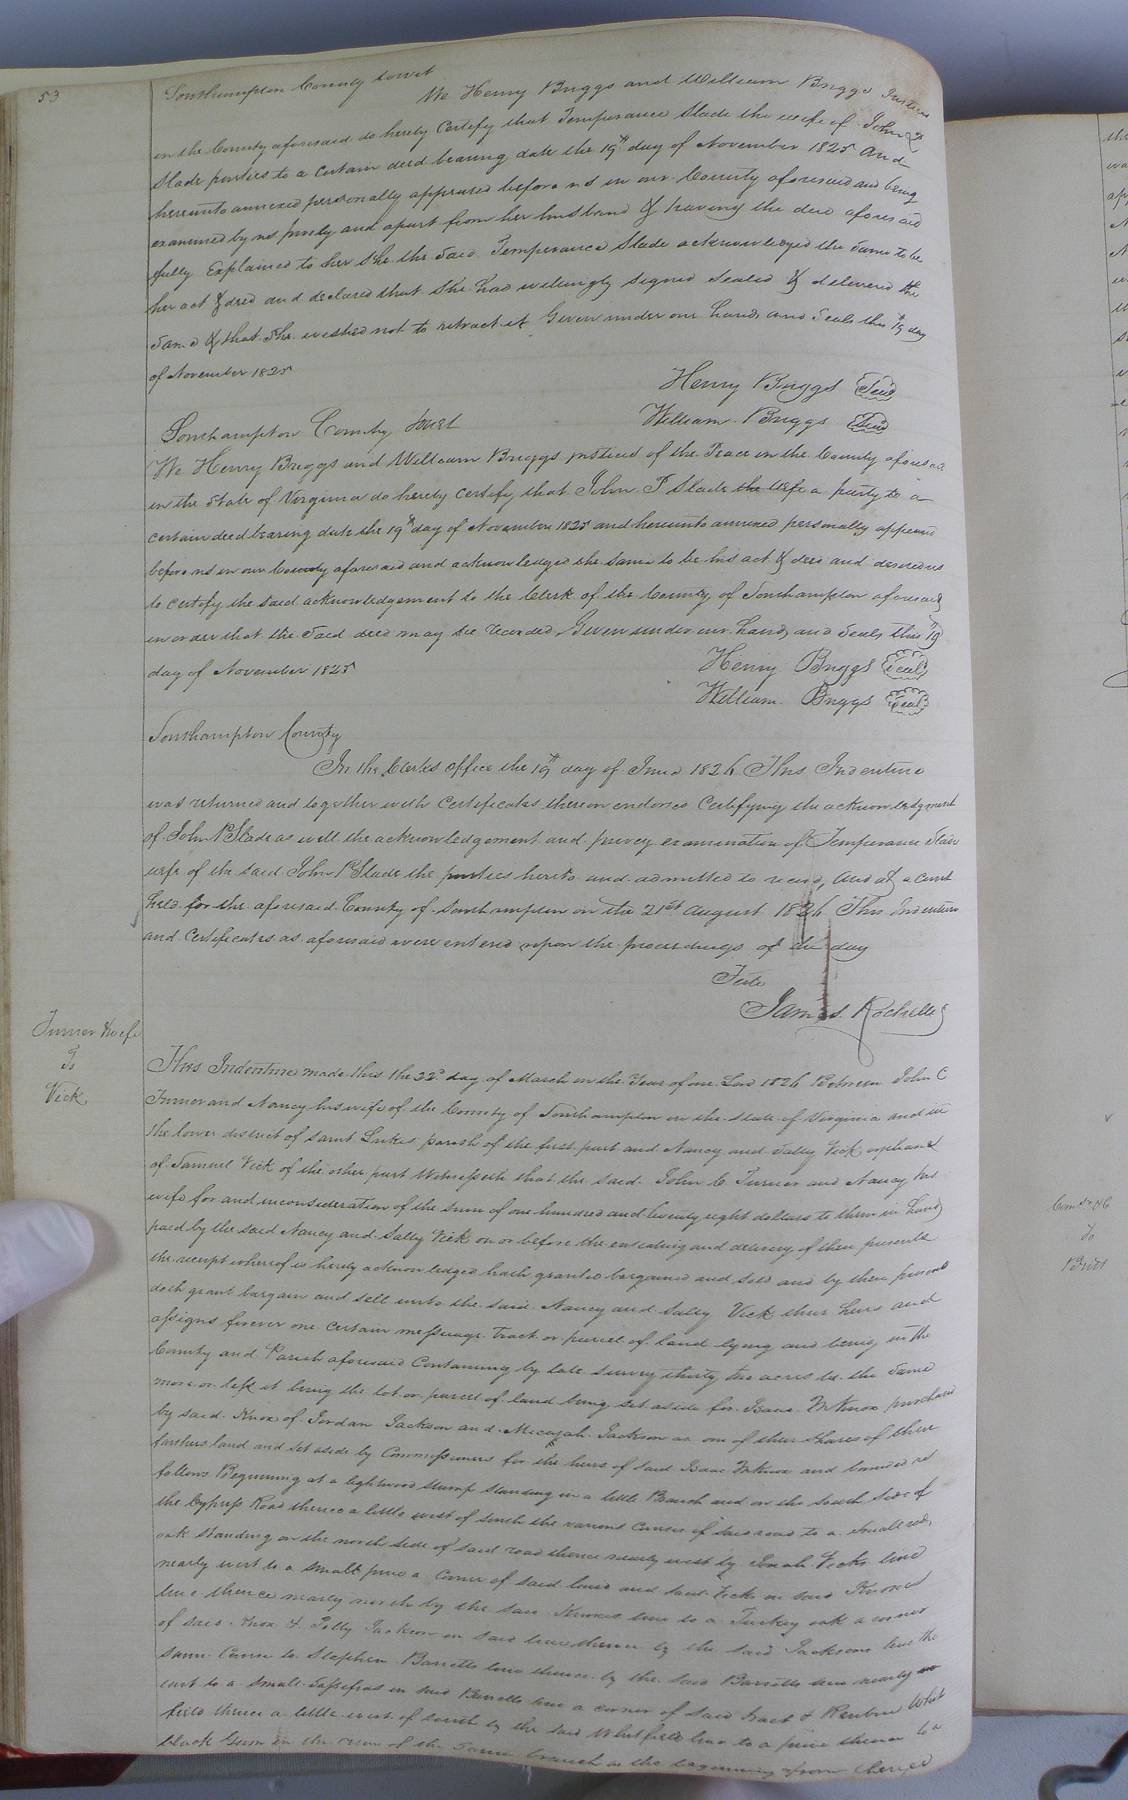 53
Southampton County towit
We Henry Briggs and William Briggs Justices
in the County aforesaid do hereby Certify that Temperance Slade the wife of John P
Slade parties to a certain deed bearing date the 19th day of November 1825 and
hereunto annexed personally appeared before us in our County aforesaid and being
examined by us privily and apart from her husband & having the deed aforesaid
fully Explained to her She the Said Temperance Slade acknowledged the Same to be
her act & deed and declared that She had willingly signed Sealed & delivered the
Same & that She wished not to retract it Given under our hands and Seals this 19 day
of November 1825
Henry Briggs Seal
William Briggs Seal
Southampton County towit
We Henry Briggs and William Briggs justices of the Peace in the County aforesaid
in the State of Virginia do hereby certify that John P Slade the wife a party to a
certain deed bearing date the 19th day of November 1825 and hereunto annexed personally appeared
before us in our County aforesaid and acknowledged the same to be his act & deed and desired us
to certify the said acknowledgement to the Clerk of the County of Southampton aforesaid
in order that the Said deed may be recorded Given under our hands and Seals this 19
day of November 1825
Henry Briggs Seal
William Briggs Seal
Southampton County
In the Clerks office the 19th day of June 1826 This Indenture
was returned and together with Certificates thereon endorsed Certifying the acknowledgment
of John P Slade as well the acknowledgement and privey examination of Temperance Slade
wife of the said John P Slade the parties hereto and admitted to record, and at a court
held for the aforesaid County of Southampton on the 21st August 1826 This Indenture
and Certificates as aforesaid were entered upon the proceedings of the day
Teste
James Rochelle
Turner & wife
To
Vick
This Indenture made this the 22d day of March in the Year of our Lord 1826 Between John C
Turner and Nancy his wife of the County of Southampton in the State of Virginia and in
the lower district of Saint Lukes parish of the first part and Nancy and Sally Vick orphans
of Samuel Vick of the other part Witnesseth that the said John C Turner and Nancy his
wife for and in consideration of the sum of one hundred and twenty eight dollars to them in hand
paid by the said Nancy and Sally Vick on or before the ensealing and delivery of these presents
the receipt whereof is hereby acknowledged hath granted bargained and sold and by these presents
doth grant bargain and sell unto the said Nancy and Sally Vick their heirs and
assigns forever one certain messuage tract or parcel of land lying and being in the
County and Parish aforesaid Containing by late survey thirty two acres be the same
more or less it being the lot or parcel of land being set aside for Isaac purchased
by said Knox of Jordan Jackson and Micajah Jackson as one of their shares of their
fathers land and set aside by Commissioners for the heirs of said Isaac and bounded as
follows Beginning at a lightwood stump standing in a little Branch and on the south side of
the Cypress Road thence a little west of south the various courses of said road to a small red
oak standing on the north side of said road thence nearly west by Vicks line
nearly west to a small pine a corner of said line and said Vicks in said Knoxes
line thence nearly north by the said Knoxes line to a Turkey oak a corner
of said Knox & Polly Jackson in said line thence by the said Jacksons line the
same Course to Stephen Barretts line thence by the said Barretts line nearly
east to a small sassafras in said Barretts line a corner of said tract & Reuben Whit
field thence a little west of south by the said Whitfields line to a pine thence to a
black Gum in the run of the same branch as the beginning from thence
Com
To